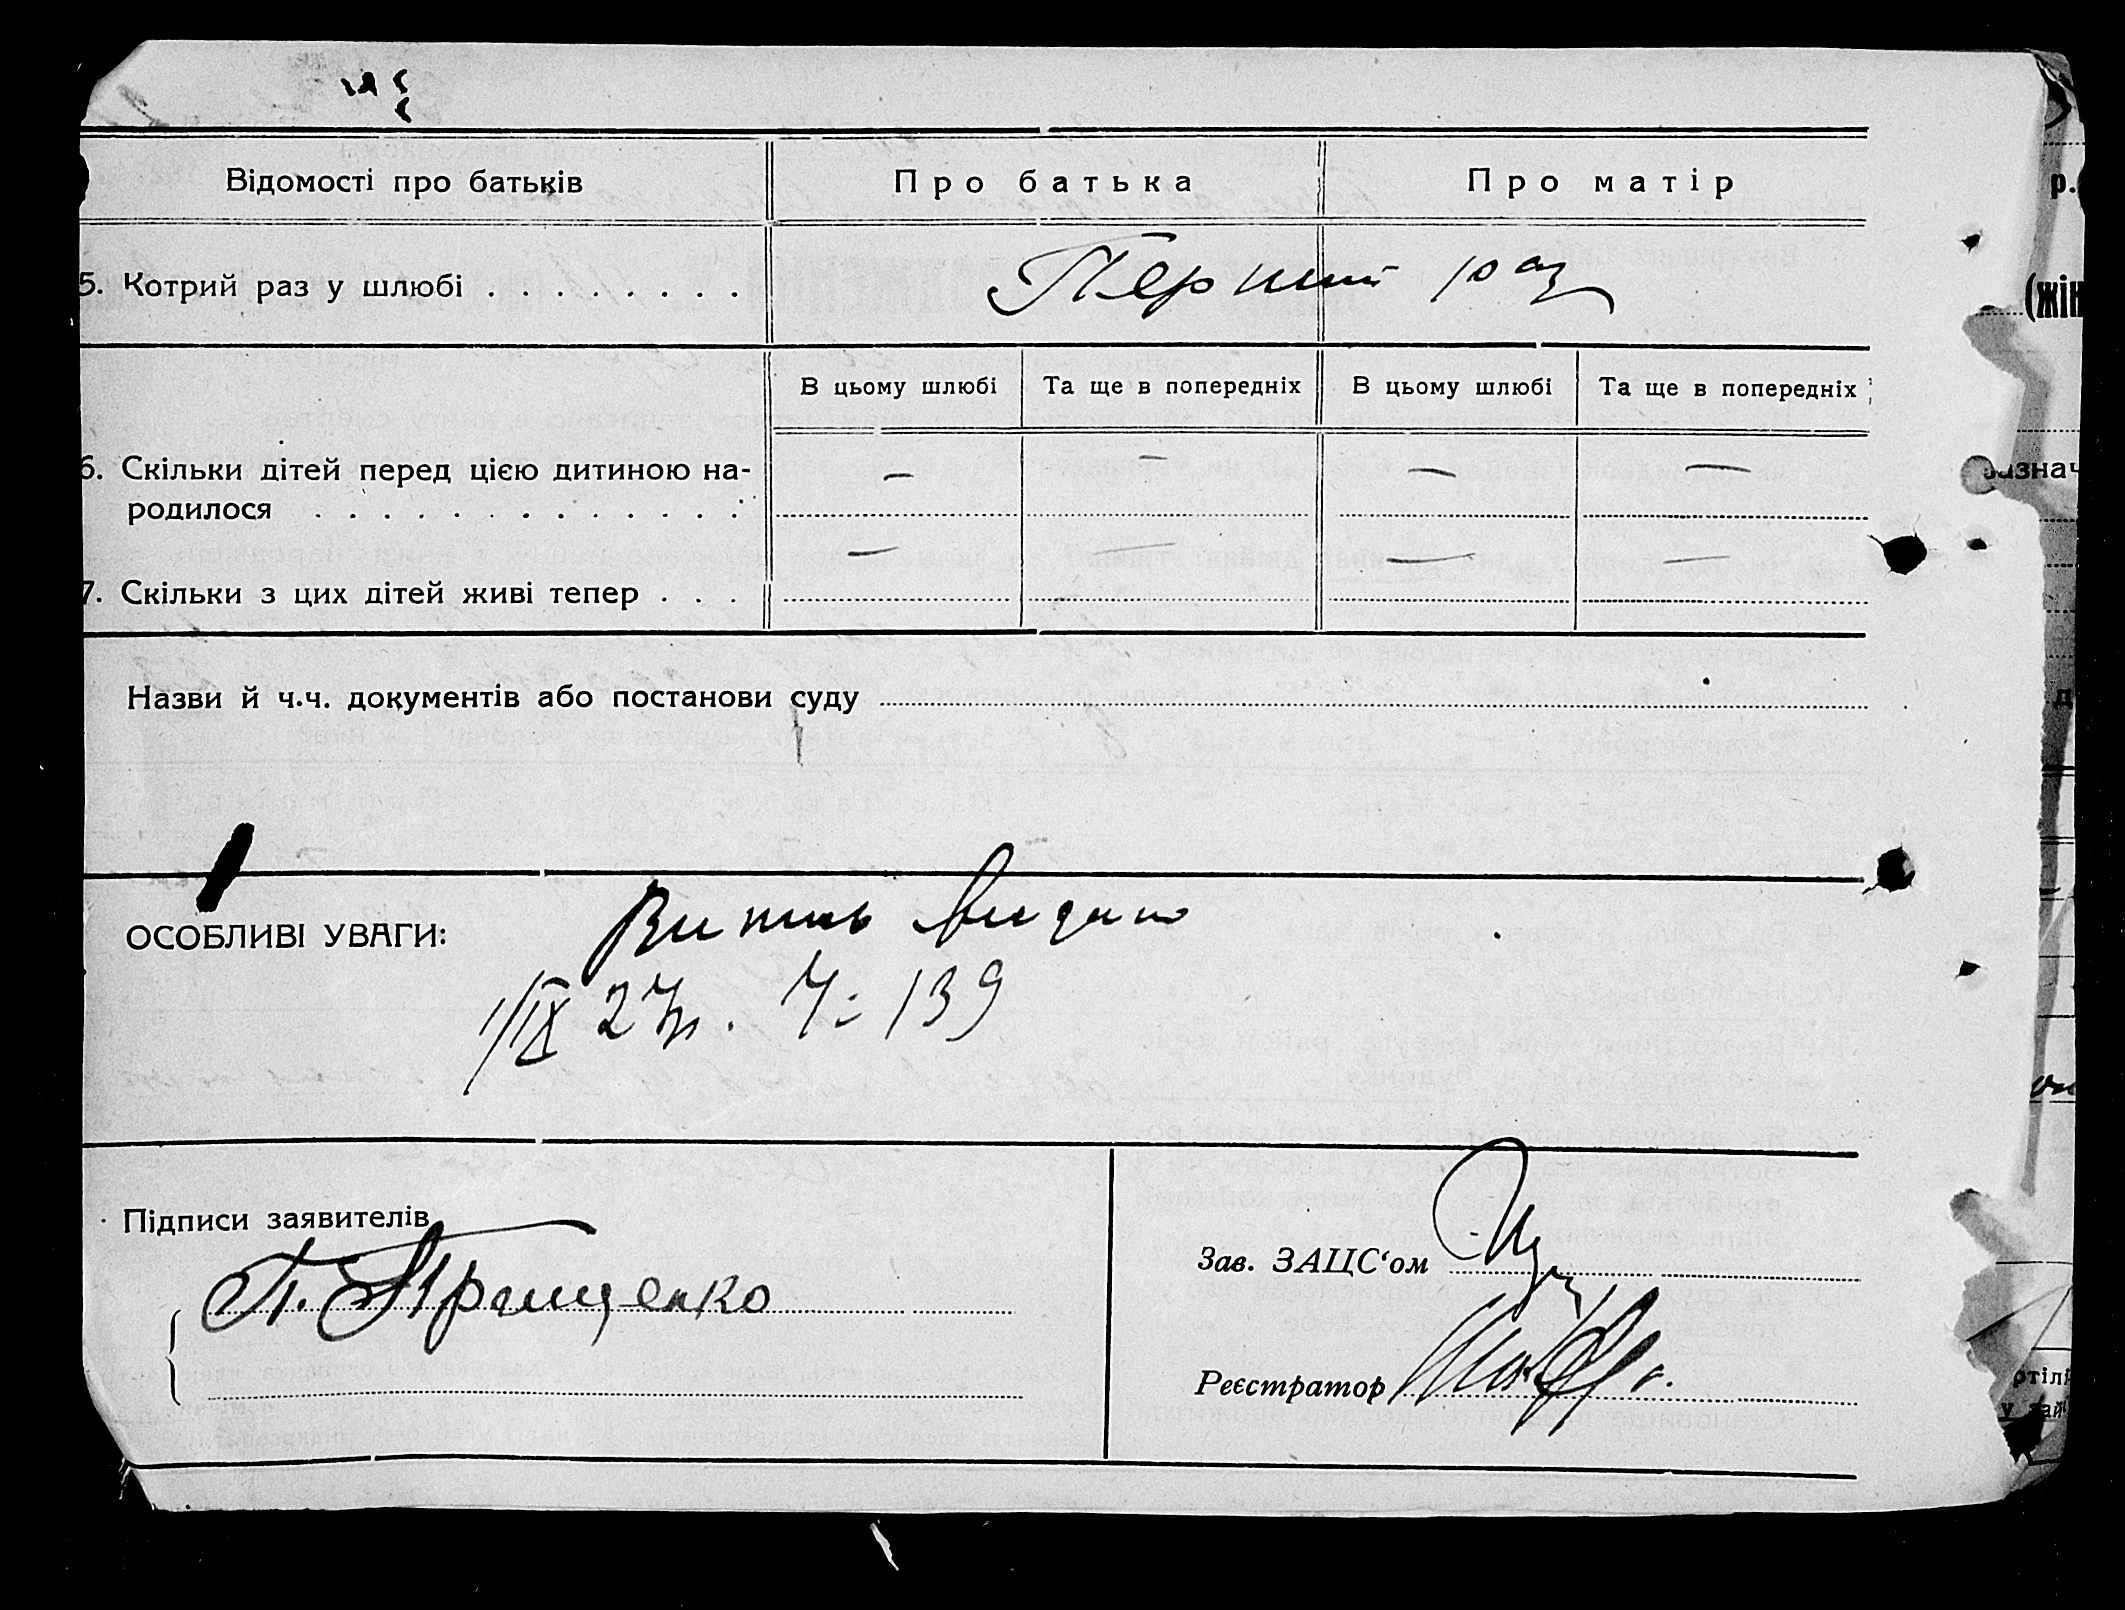 Відомості про батьків
Про батька
Про матір
5. Котрий раз у шлюбі . . . . . . . .
Перший раз
В цьому шлюбі
Та ще в попередніх
В цьому шлюбі
Та ще в попередніх
6. Скільки дітей перед цією дитиною на-
— — — —
родилося . . . . . . . . . . . . .
— — — —
7. Скільки з цих дітей живі тепер . . .
Назви й ч.ч. документів або постанови суду
ОСОБЛИВІ УВАГИ:
Витяг видано
1/IX 27р. Ч: 139
Підписи заявителів
Зав. ЗАЦС‘ом
Реєстратор
р.
(жін
зазнач